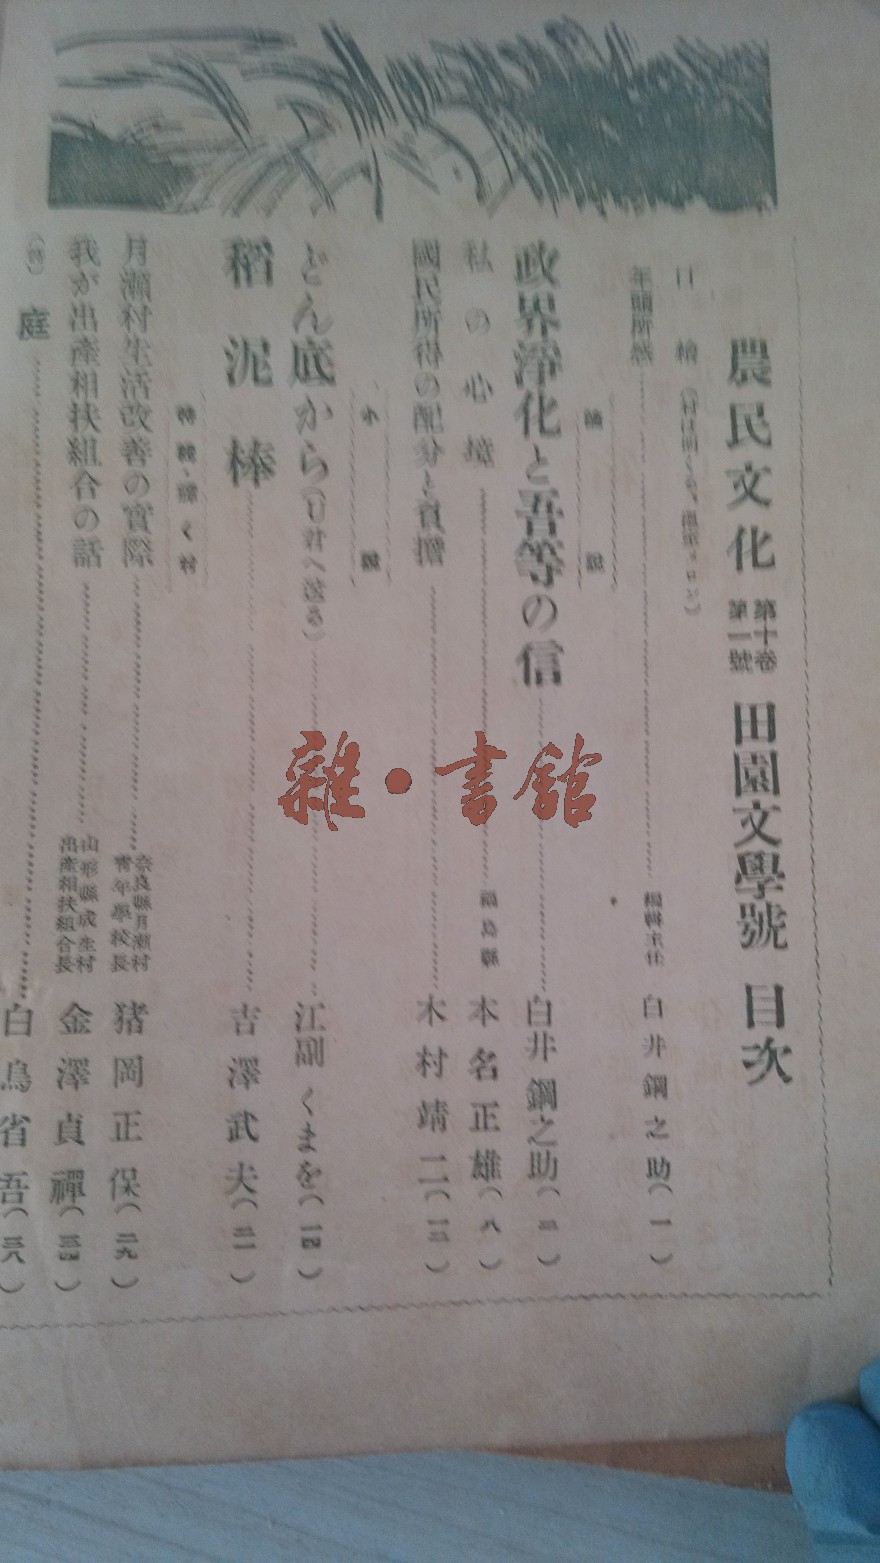 農民文化 第十卷 第一號 田園文學號 目次
口繪
年頭所感 編輯主任 白井鋼之助(一)
論說
政界淨化と吾等の信 白井鋼之助(二)
私の心境 福島縣 本名正雄(八)
國民所得の配分と負擔 木村靖二(一二)
小說
どん底から(U君へ送る) 江副くまを(一四)
稻泥棒 吉澤武夫(二一)
特輯・輝く村
月瀨村生活改善の實際 奈良縣月瀨村青年學校長 猪岡正保(二九)
我が出產相扶組合の話 山形縣成生村出產相扶組合長 金澤貞禪(三四)
(詩) 庭 白鳥省吾(三八)
雜·書館